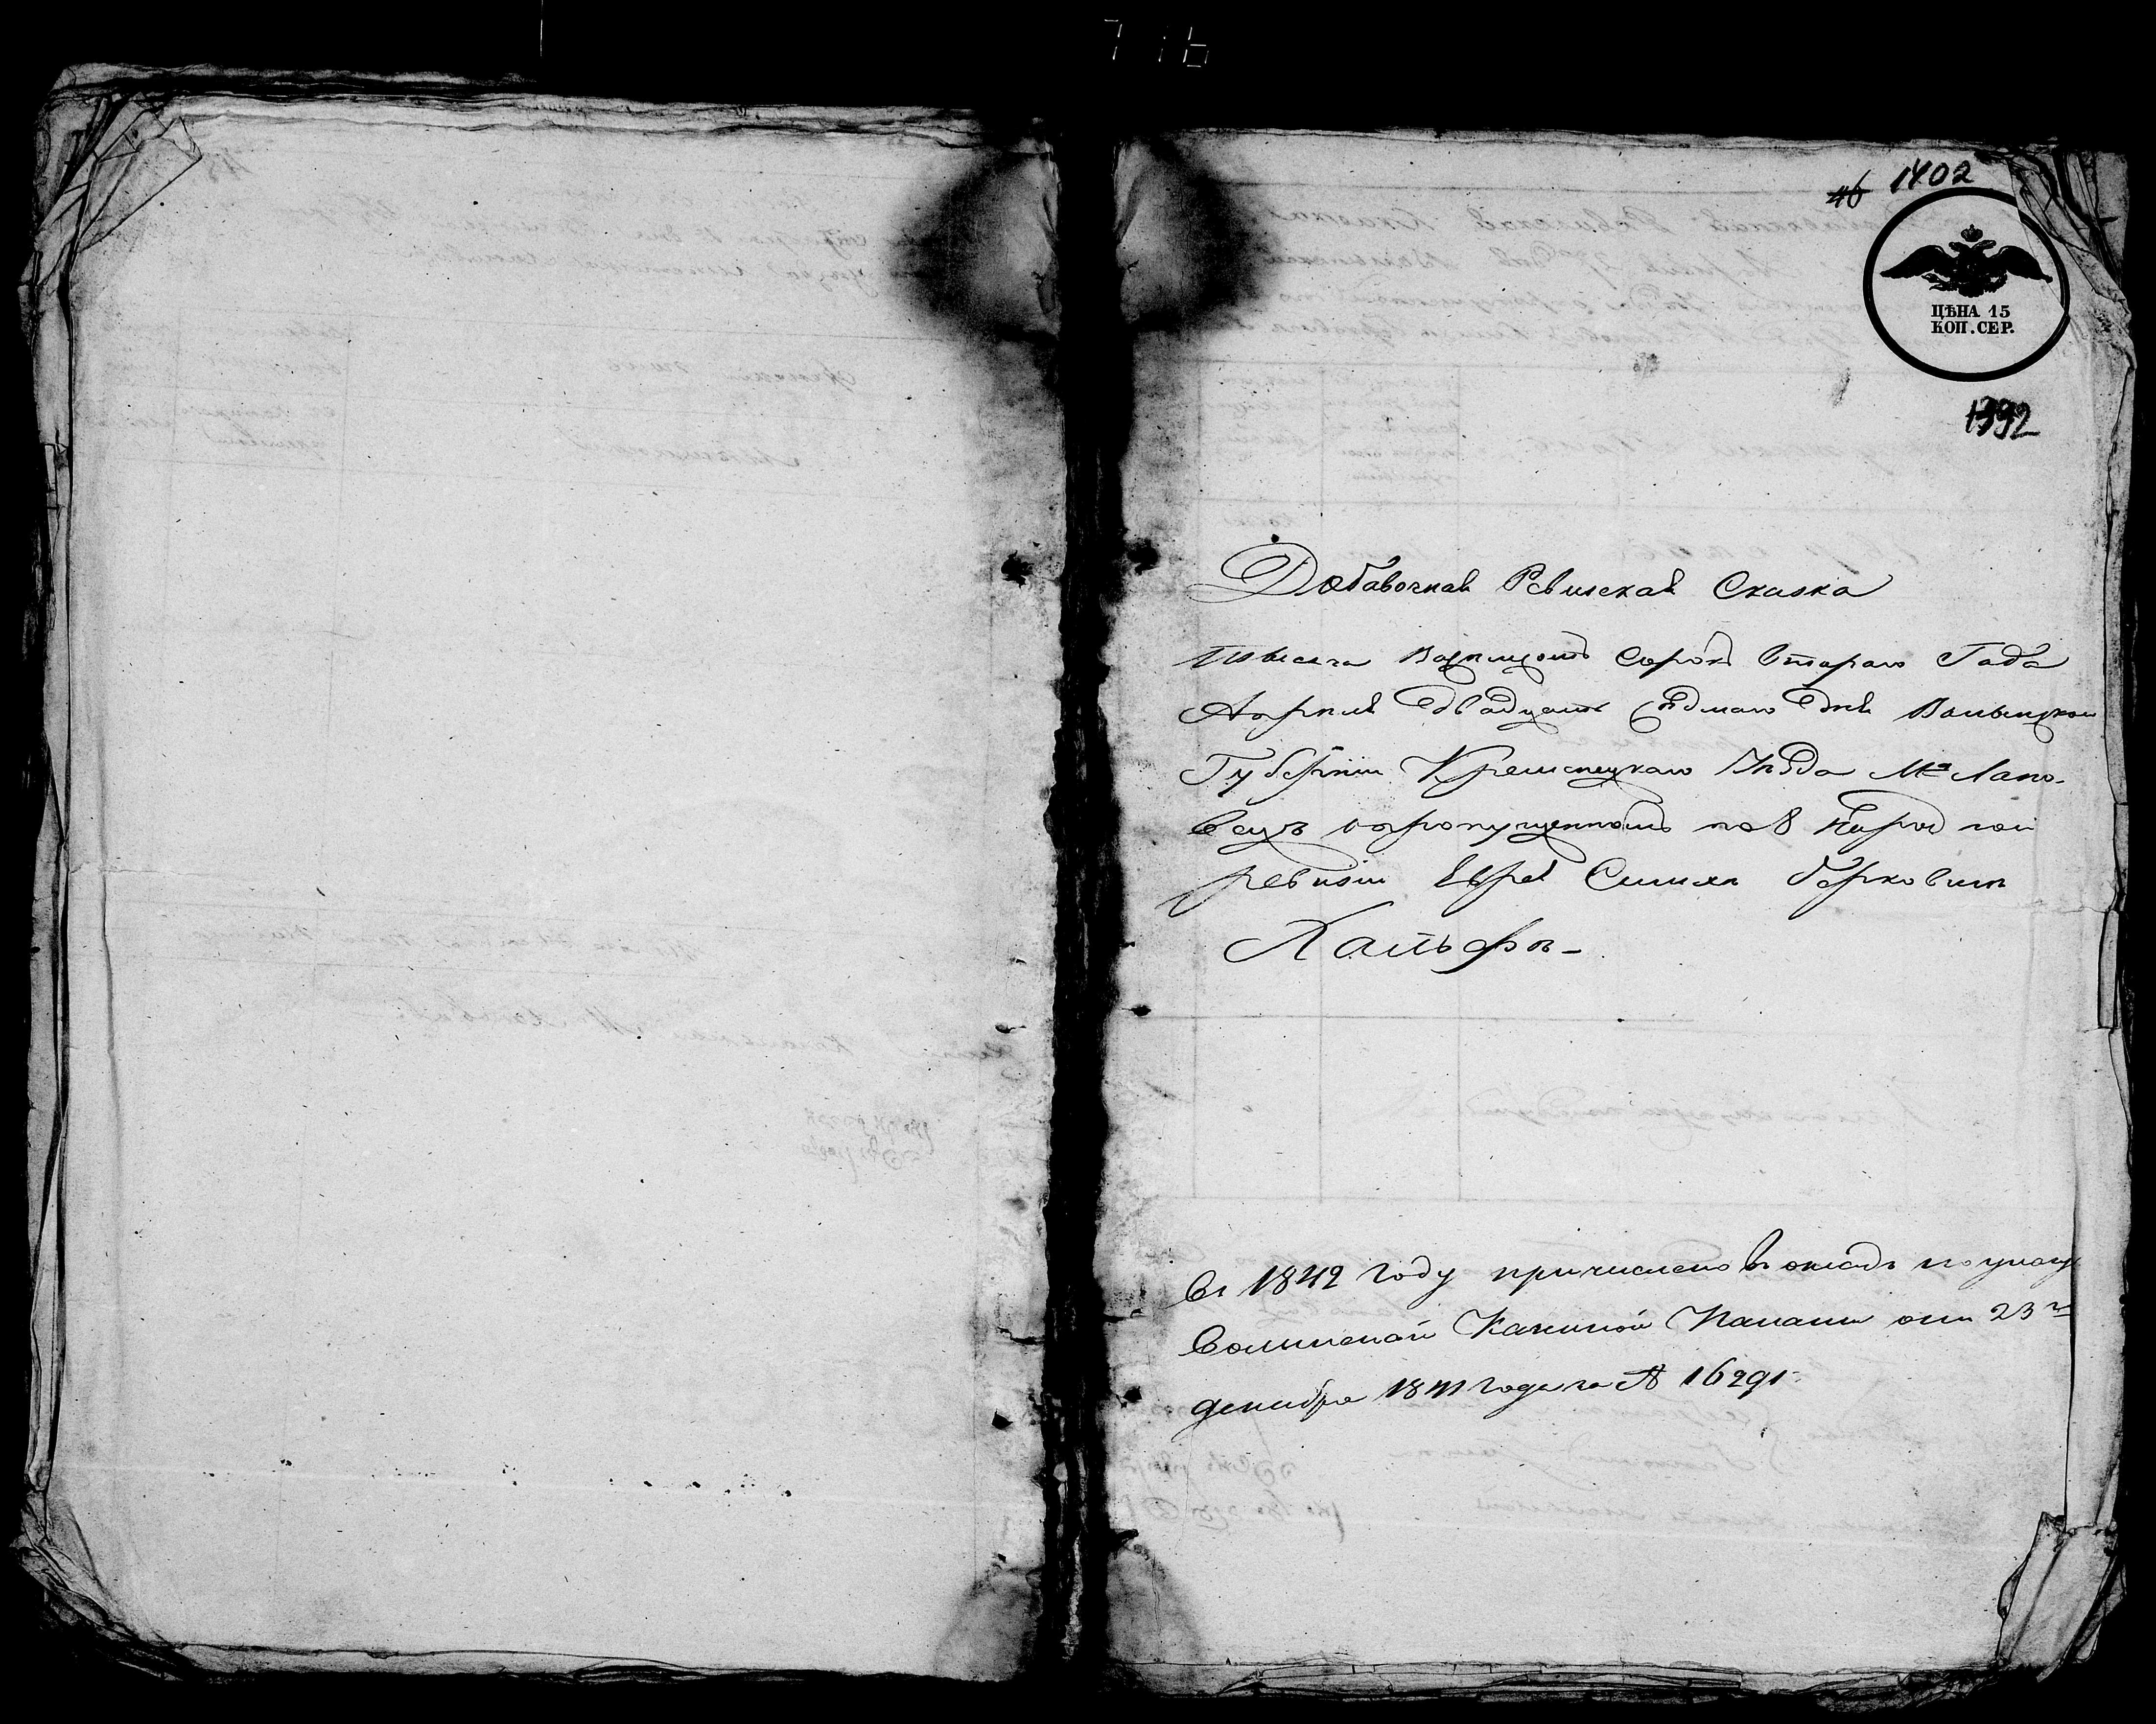 1402
46
ЦѢНА 15
КОП. СЕР.
1392
Добавочная Ревиская Сказка
Тысяча Восемъсотъ Сорокъ втараго Года
Апреля Двадцать Седмаго Дня Волынской
Губернии Кременецкаго Уезда Мка Лано-
вецъ пропущенномъ по 8 Народной
ревизии Еврея Симхи Берковича
Кальфы-
Въ 1842 году причислено въ окладъ по указу
Волынской Казенной Палаты отъ 23го
декабря 1841 года за № 16291.